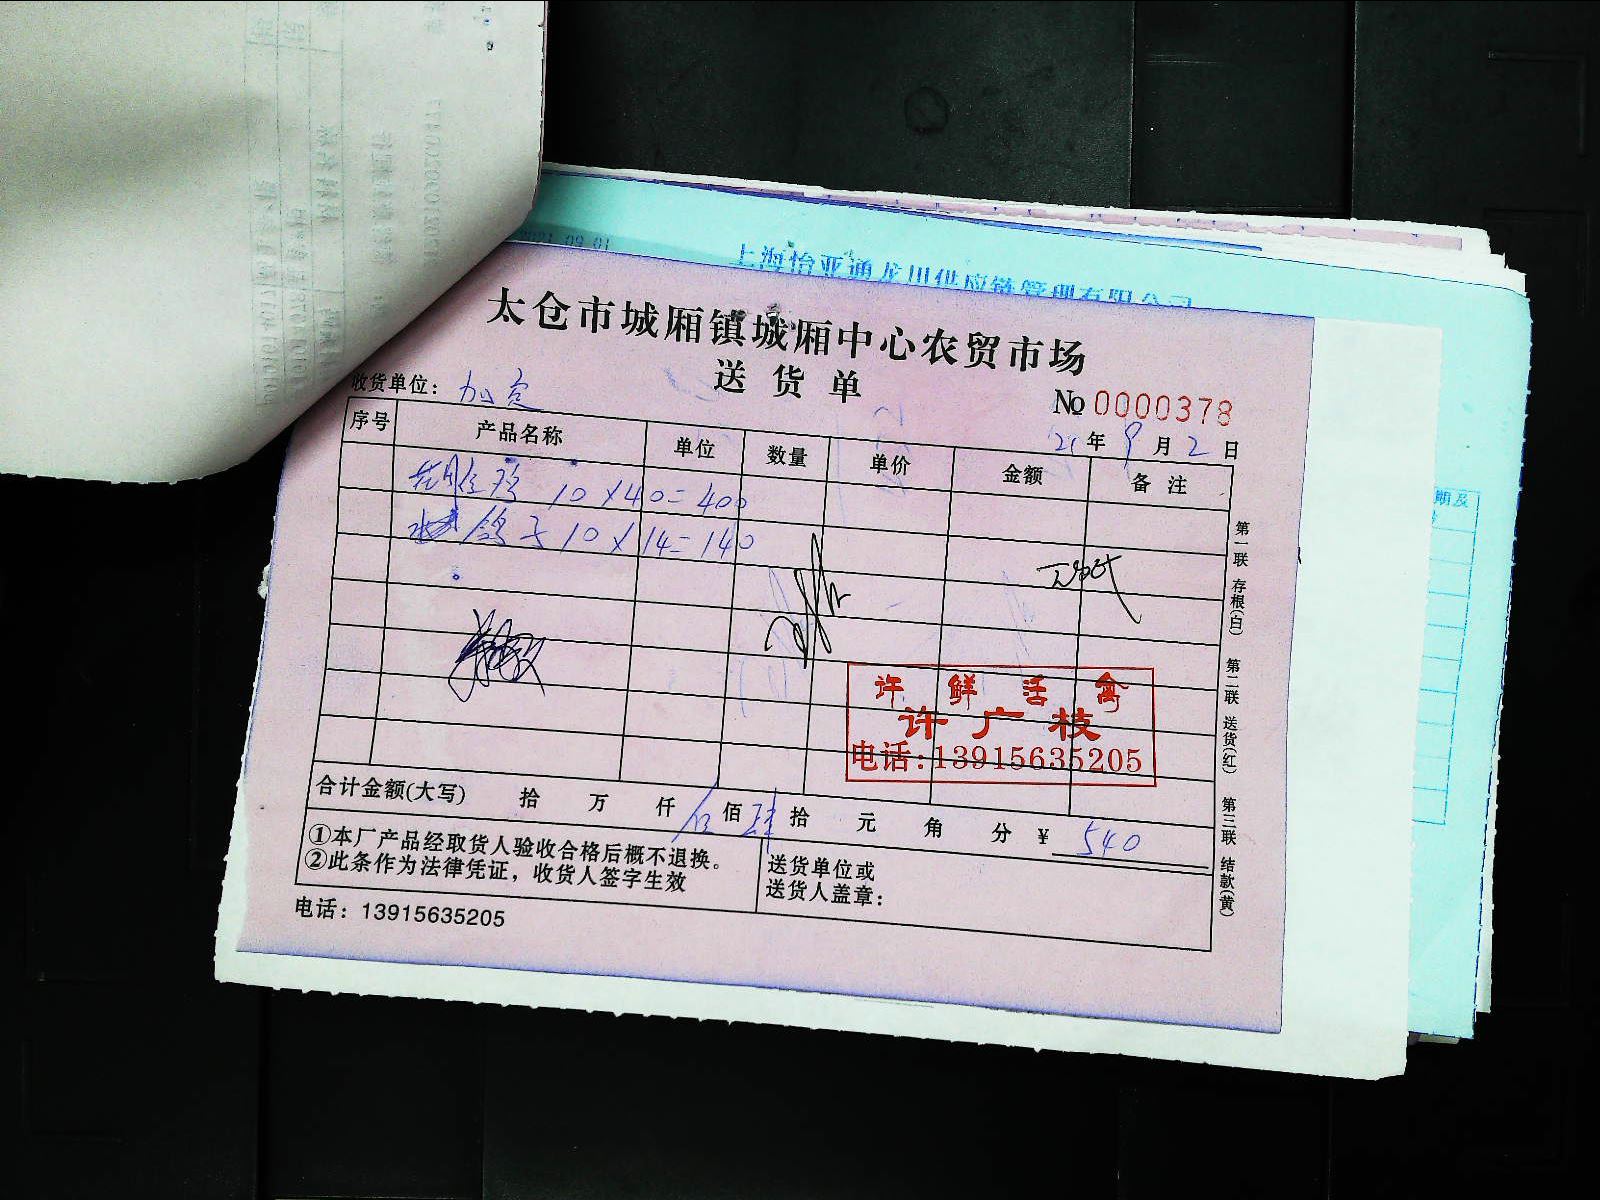 上海怡亚通龙川供应链管理有限公司
太仓市城厢镇城厢中心农贸市场
送货单
收货单位：加定
№ 0000378
21年9月2日
序号 产品名称 单位 数量 单价 金额 备注
10×40=400
鸽子10×14=140
许鲜活禽
许广枝
电话:13915635205
合计金额(大写) 拾 万 仟 伍佰 肆拾 元 角 分 ¥ 540
①本厂产品经取货人验收合格后概不退换。
②此条作为法律凭证，收货人签字生效
送货单位或
送货人盖章:
电话：13915635205
第一联 存根(白)
第二联 送货(红)
第三联 结款(黄)